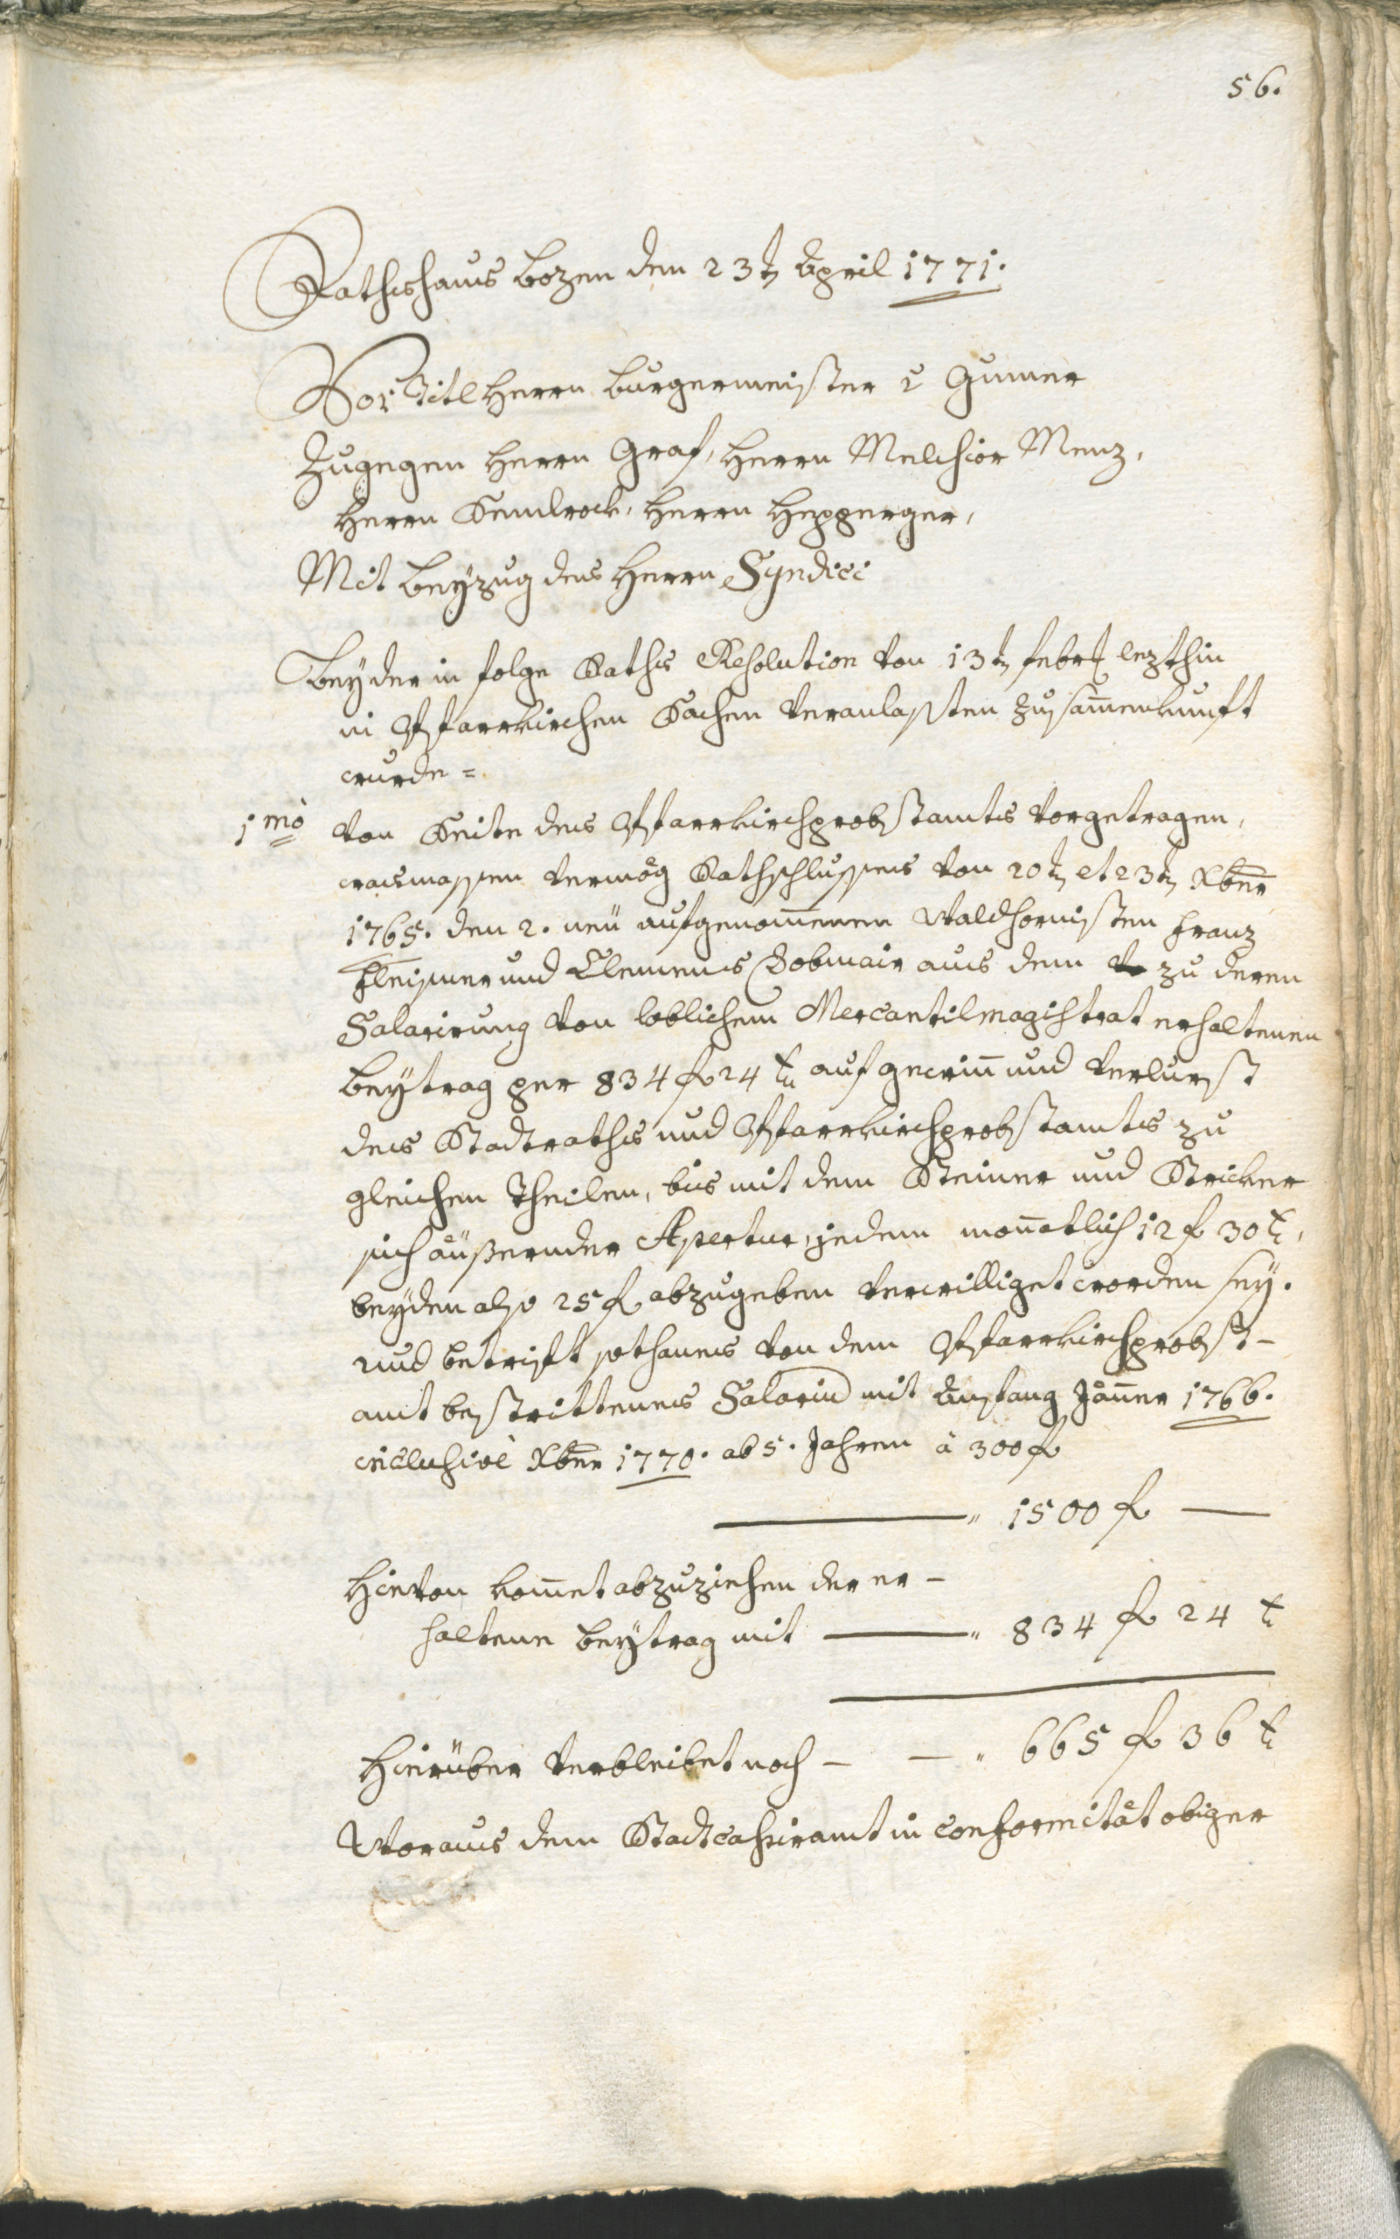 56.
Rathshaus Bozen den 23t April 1771.
Vor Titl Herrn Burgermeister v Gumer
Zugegen Herrn Graf, Herrn Melchior Menz,
Herrn Kemlrock, Herrn Hepperger,
Mit Beyzug des Herrn Syndici
Bey der in folge Raths Resolution von 13t febr lezthin
in Pfarrkirchen Sachen veranlasten Zusam̅enkunft
wurde =
1mò von Seite des Pfarrkirchprobstamts vorgetragen,
wasmassen vermög Rathschlusses von 20t et 23t Xber
1765. den 2. neü aufgenom̅enen Waldhornisten Franz
Fleisner und Clemens Dobmair aus dem zu deren
Salarirung von loblichem Mercantilmagistrat erhaltenen
Beytrag per 834 f 24 x auf gewin̅ und verlurst
des Stadtraths und Pfarrkirchprobstamts zu
gleichen Theilen, bis mit dem Steiner und Stricker
sich äußernder Apertur, jedem monnatlich 12 f 30 x,
beyden also 25 f abzugeben verwilliget worden sey.
und betrift sothanes von dem Pfarrkirchprobst-
amt bestrittenes Salariu mit Anfang Jänner 1766.
inclusivè Xber 1770. ab 5. Jahren à 300 f
" 1500 f —
Hievon kom̅et abzuziehen der er-
haltene Beytrag mit — " 834 f 24 x
Hierüber verbleibet noch — — " 665 f 36 x
Woraus dem Stadtcassieramt in conformität obiger